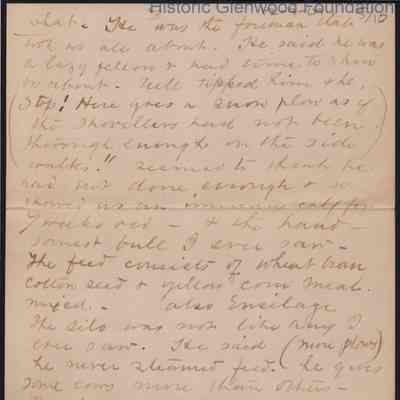 Historic Glenwood Foundation
what. He was the foreman that
took us all about. He said he was
a lazy fellow & had come to show
us about. Will tipped him & he,
(Stop! Here goes a snow plow as if
the shovellers had not been
through enough on the side
walks.") seemed to think he
had not done enough & so
showed us an immense calf for
7 weeks old - & the hand-
somest bull I ever saw -
The feed consists of wheat bran
cotton seed & yellow corn meal
mixed. - Also Ensilage
The silo was not like any I
ever saw. He said (more plows)
he never steamed feed. he gives
some cows more than others -